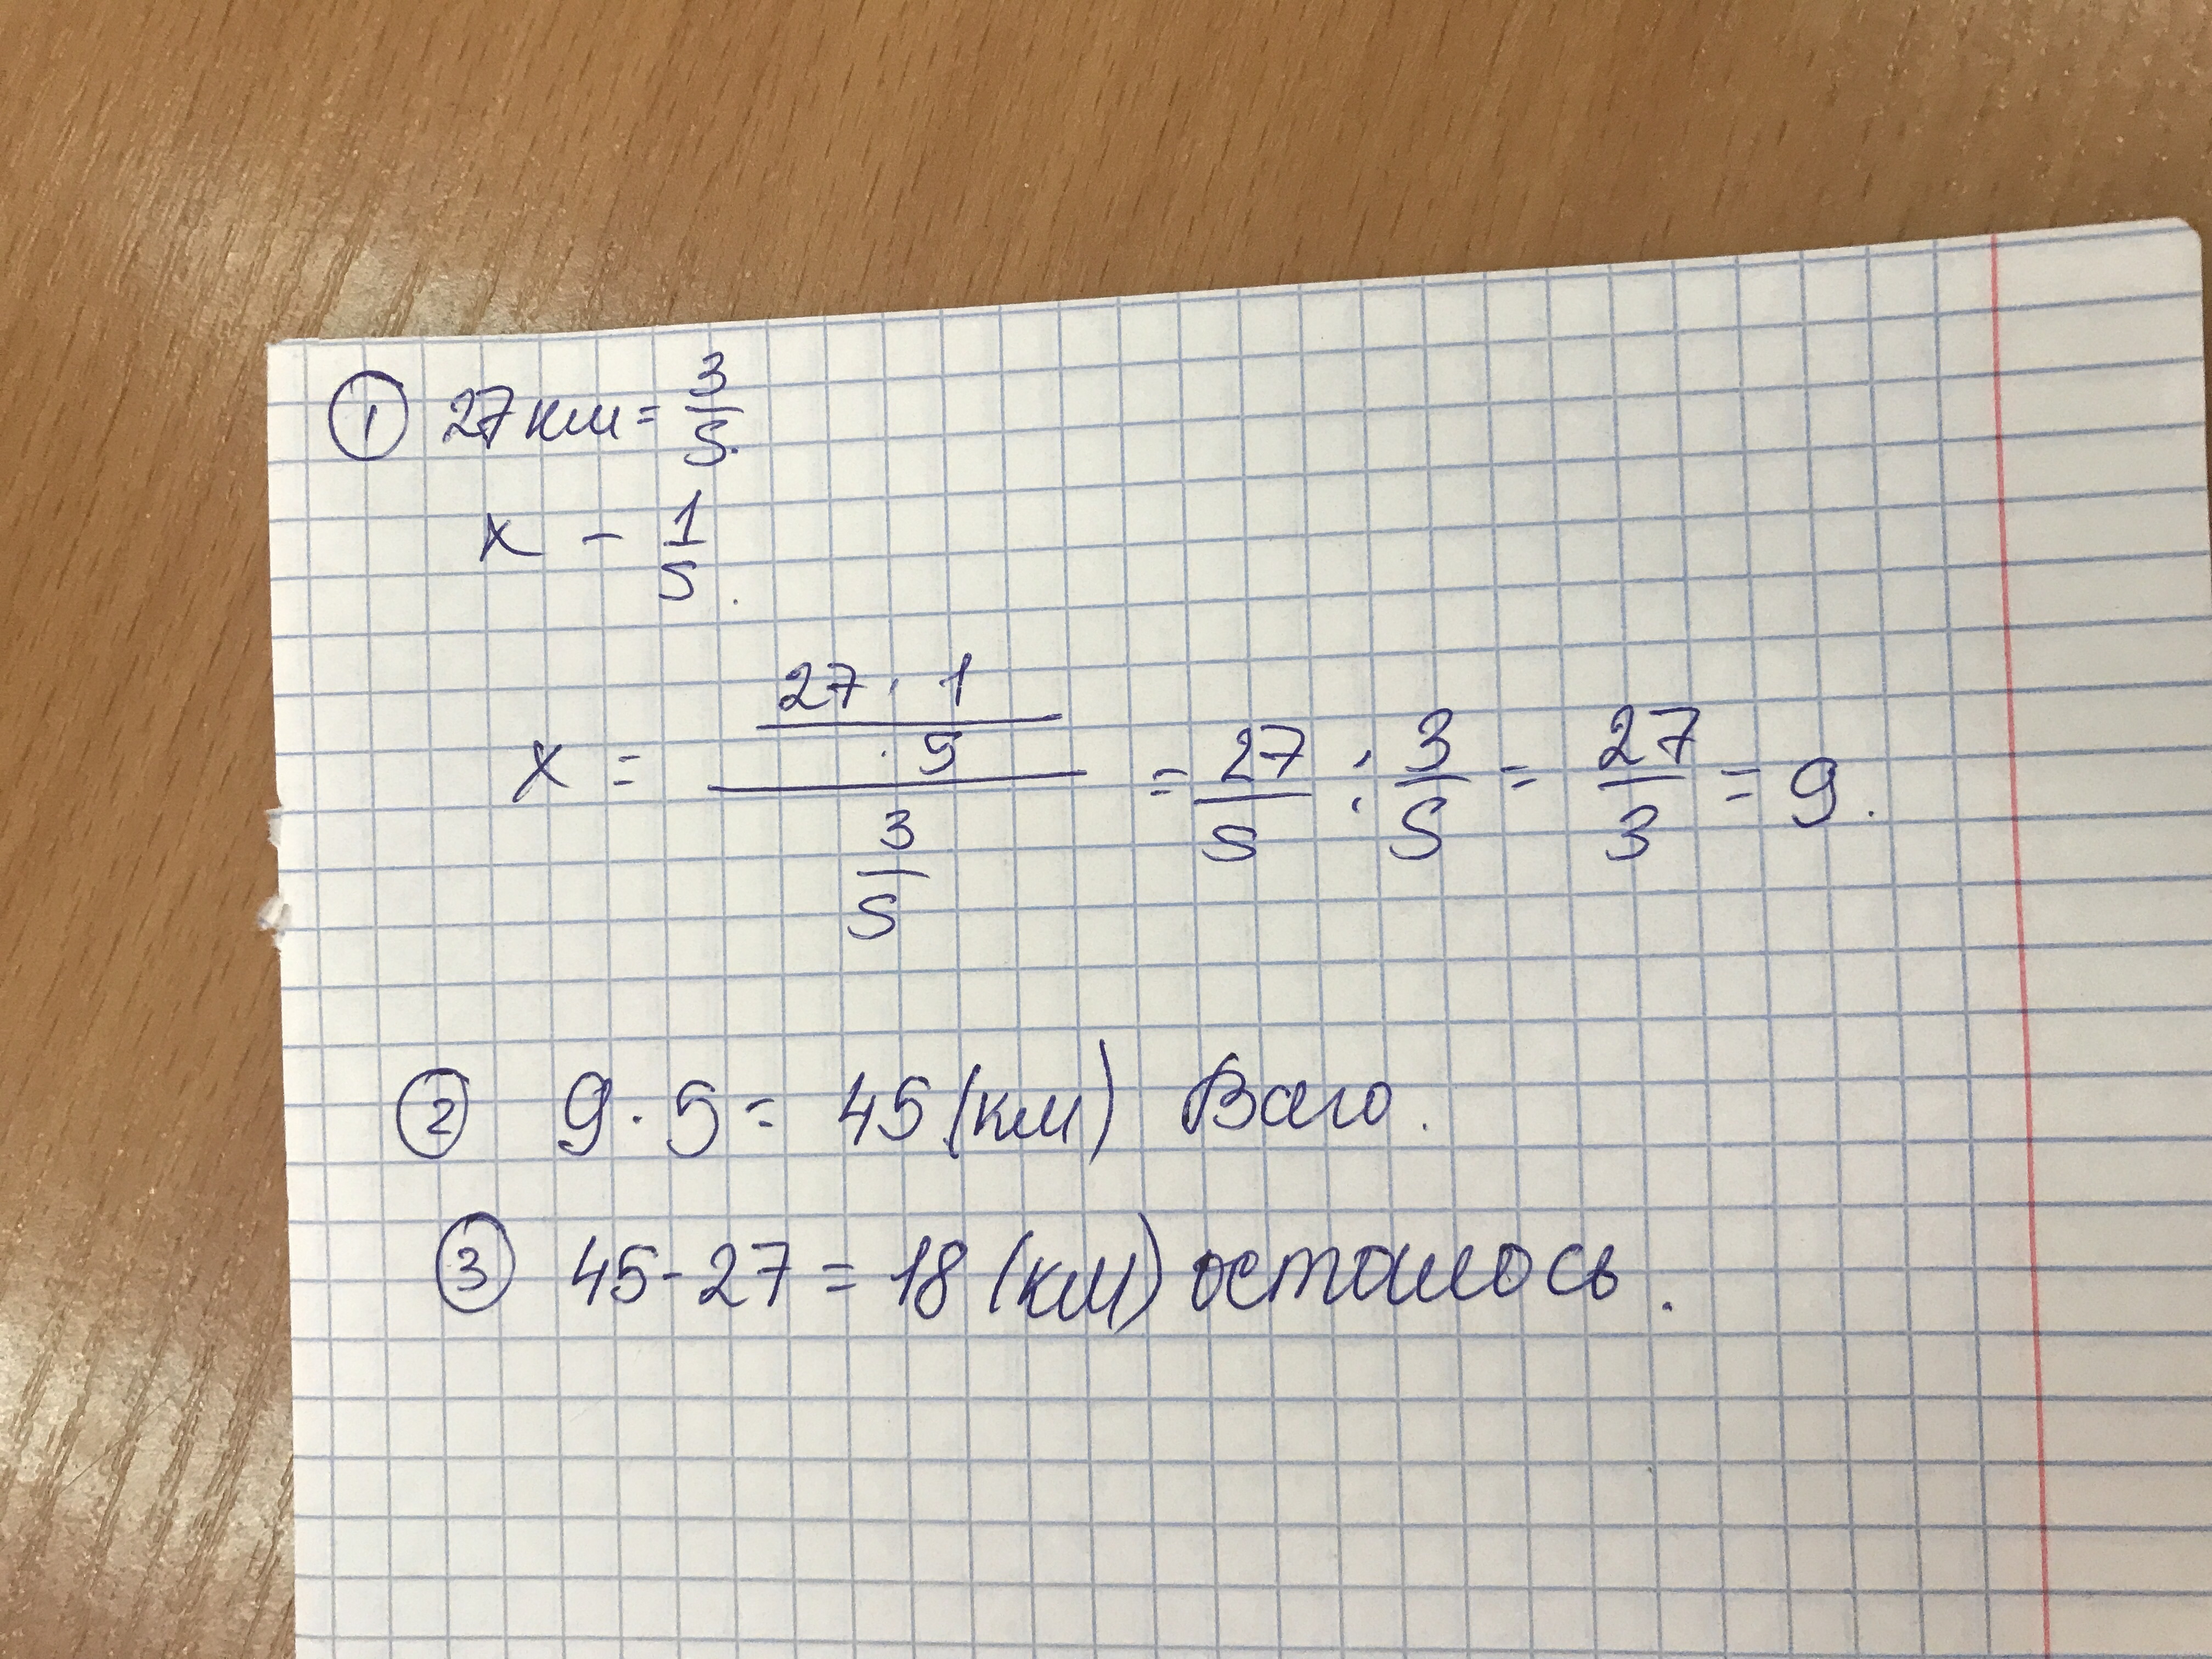 ① 27 км = 3/5.
x - 1/5.
x = (27 · 1 / · 5) / (3/5) = 27/5 : 3/5 = 27/3 = 9.
② 9 · 5 = 45 (км) Всего.
③ 45 - 27 = 18 (км) осталось.